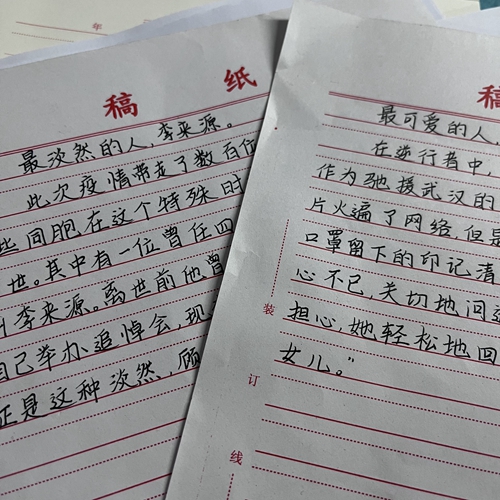 年
稿 纸
最淡然的人,李来源。
此次疫情带走了数百位
些同胞,在这个特殊时
世。其中有一位曾任四
李来源。离世前他曾
自己举办追悼会,现
正是这种淡然,顾
稿
最可爱的人,
在逆行者中,
作为驰援武汉的
片火遍了网络,但是
口罩留下的印记清
心不已,关切地问
担心,她轻松地回
女儿。"
装
订
线